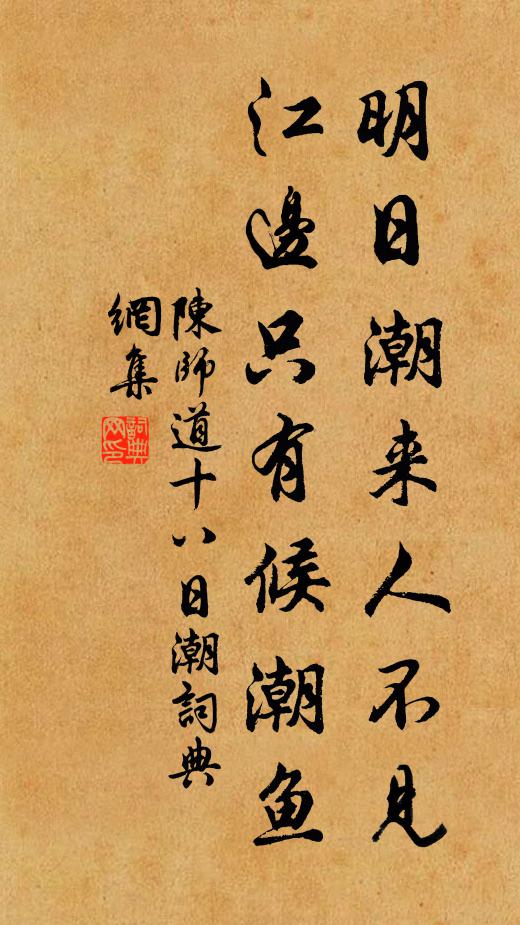 明日潮来人不見
江邊只有候潮鱼
陳師道十八日潮詞典
網集
詞典網印